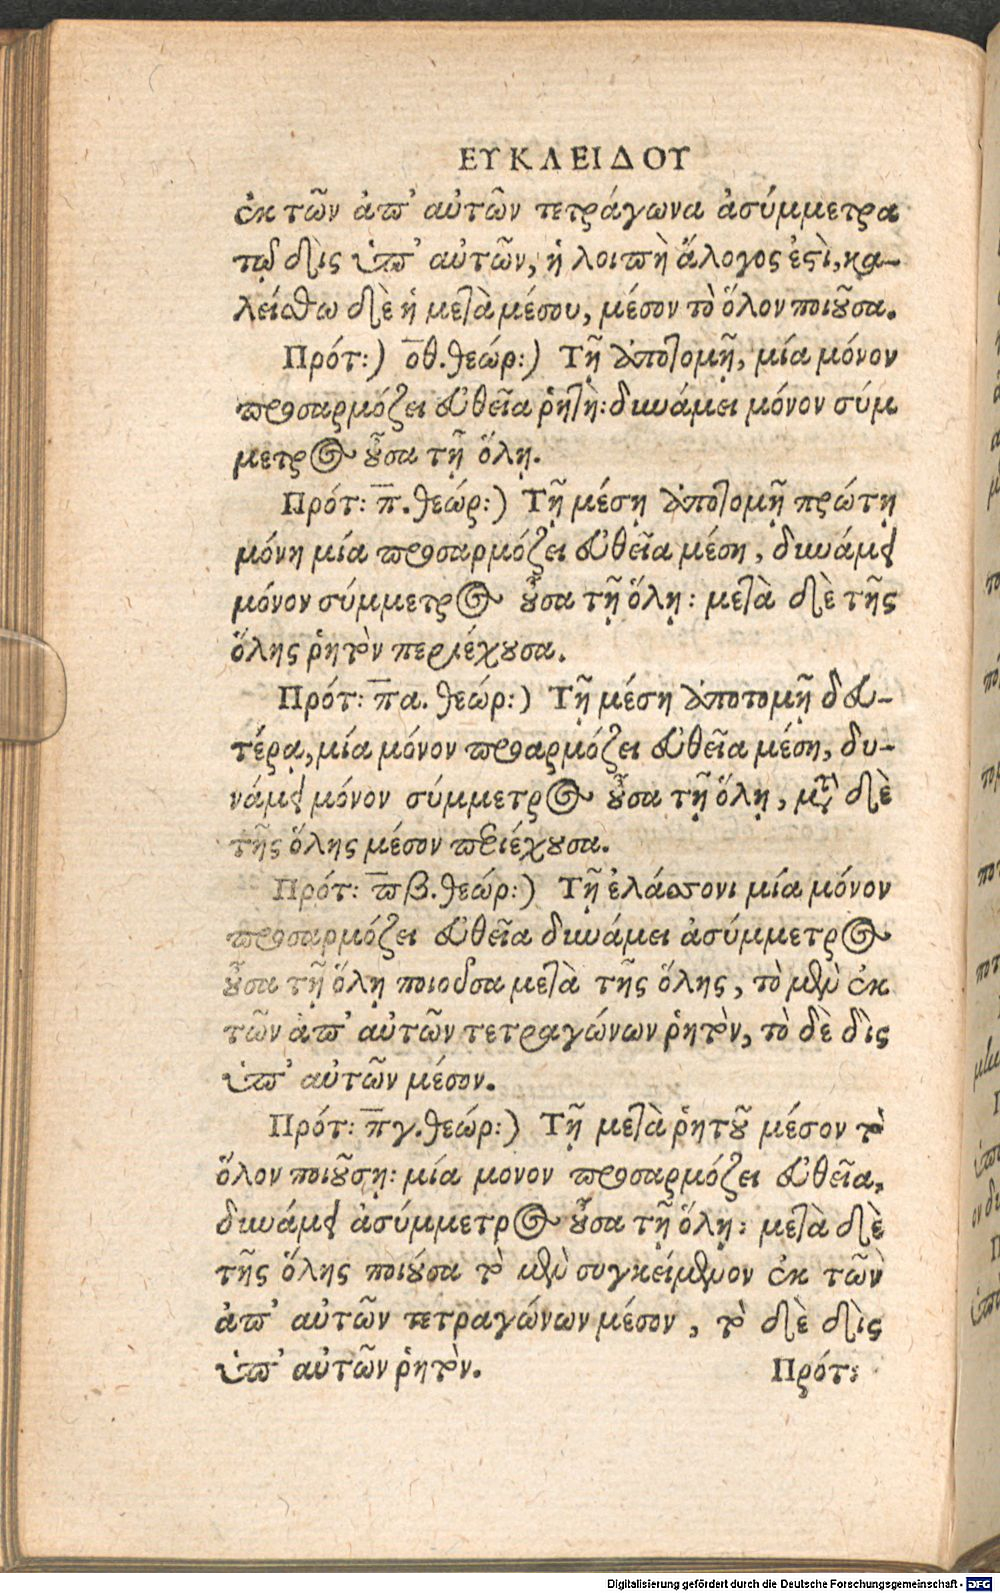 ΕΥΚΛΕΙΔΟΥ
ἐκ τῶν ἀπ' αὐτῶν τετράγωνα ἀσύμμετρα
τῷ δὶς ὑπ' αὐτῶν, ἡ λοιπὴ ἄλογος ἐστὶ, κα-
λείσθω δὲ ἡ μετὰ μέσου, μέσον τὸ ὅλον ποιοῦσα.
Πρότ:) οθ. θεώρ:) Τῇ ἀποτομῇ, μία μόνον
προσαρμόζει εὐθεῖα ῥητὴ: δυνάμει μόνον σύμ
μετρος οὖσα τῇ ὅλῃ.
Πρότ: π. θεώρ:) Τῇ μέσῃ ἀποτομῇ πρώτῃ
μόνη μία προσαρμόζει εὐθεῖα μέση, δυνάμει
μόνον σύμμετρος οὖσα τῇ ὅλῃ: μετὰ δὲ τῆς
ὅλης ῥητὸν περιέχουσα.
Πρότ: πα. θεώρ:) Τῇ μέσῃ ἀποτομῇ δευ-
τέρᾳ, μία μόνον προσαρμόζει εὐθεῖα μέση, δυ-
νάμει μόνον σύμμετρος οὖσα τῇ ὅλῃ, μετὰ δὲ
τῆς ὅλης μέσον περιέχουσα.
Πρότ: πβ. θεώρ:) Τῇ ἐλάσσονι μία μόνον
προσαρμόζει εὐθεῖα δυνάμει ἀσύμμετρος
οὖσα τῇ ὅλῃ ποιοῦσα μετὰ τῆς ὅλης, τὸ μὲν ἐκ
τῶν ἀπ' αὐτῶν τετραγώνων ῥητὸν, τὸ δὲ δὶς
ὑπ' αὐτῶν μέσον.
Πρότ: πγ. θεώρ:) Τῇ μετὰ ῥητοῦ μέσον τὸ
ὅλον ποιούσῃ: μία μονον προσαρμόζει εὐθεῖα,
δυνάμει ἀσύμμετρος οὖσα τῇ ὅλῃ: μετὰ δὲ
τῆς ὅλης ποιούσα τὸ μὲν συγκείμενον ἐκ τῶν
ἀπ' αὐτῶν τετραγώνων μέσον, τὸ δὲ δὶς
ὑπ' αὐτῶν ῥητὸν. Πρότ:
Digitalisierung gefördert durch die Deutsche Forschungsgemeinschaft - DFG